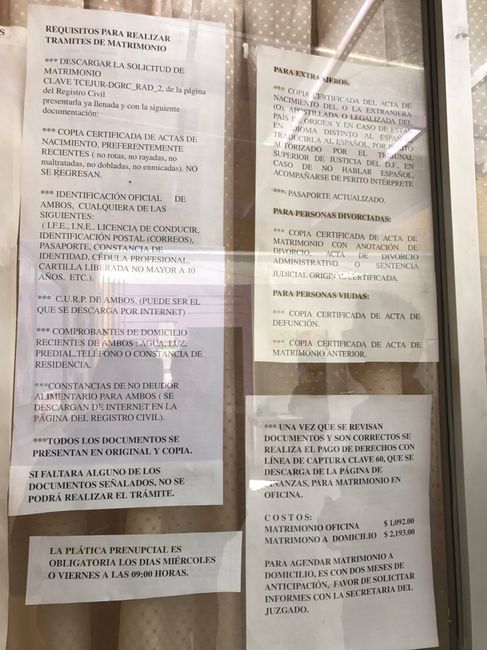 REQUISITOS PARA REALIZAR
TRAMITES DE MATRIMONIO
*** DESCARGAR LA SOLICITUD DE
MATRIMONIO
CLAVE TCEJUR-DGRC_RAD_2, de la página
del Registro Civil
presentarla ya llenada y con la siguiente
documentación:
*** COPIA CERTIFICADA DE ACTAS DE
NACIMIENTO, PREFERENTEMENTE
RECIENTES ( no rotas, no rayadas, no
maltratadas, no dobladas, no enmicadas). NO
SE REGRESAN.
*** IDENTIFICACIÓN OFICIAL DE
AMBOS, CUALQUIERA DE LAS
SIGUIENTES:
( I.F.E., I.N.E., LICENCIA DE CONDUCIR,
IDENTIFICACIÓN POSTAL (CORREOS),
PASAPORTE, CONSTANCIA DE
IDENTIDAD, CÉDULA PROFESIONAL,
CARTILLA LIBERADA NO MAYOR A 10
AÑOS, ETC.).
*** C.U.R.P. DE AMBOS. (PUEDE SER EL
QUE SE DESCARGA POR INTERNET)
*** COMPROBANTES DE DOMICILIO
RECIENTES DE AMBOS : AGUA, LUZ,
PREDIAL,TELÉFONO O CONSTANCIA DE
RESIDENCIA.
***CONSTANCIAS DE NO DEUDOR
ALIMENTARIO PARA AMBOS ( SE
DESCARGAN DE INTERNET EN LA
PÁGINA DEL REGISTRO CIVIL).
***TODOS LOS DOCUMENTOS SE
PRESENTAN EN ORIGINAL Y COPIA.
SI FALTARA ALGUNO DE LOS
DOCUMENTOS SEÑALADOS, NO SE
PODRÁ REALIZAR EL TRÁMITE.
LA PLÁTICA PRENUPCIAL ES
OBLIGATORIA LOS DIAS MIÉRCOLES
O VIERNES A LAS 09:00 HORAS.
PARA EXTRANJEROS:
*** COPIA CERTIFICADA DEL ACTA DE
NACIMIENTO DEL O LA EXTRANJERA
(O), APOSTILLADA O LEGALIZADA DEL
PAÍS DE ORIGEN Y EN CASO DE ESTAR
EN IDIOMA DISTINTO AL ESPAÑOL
TRADUCIRLA AL ESPAÑOL, POR PERITO
AUTORIZADO POR EL TRIBUNAL
SUPERIOR DE JUSTICIA DEL D.F.. EN
CASO DE NO HABLAR ESPAÑOL,
ACOMPAÑARSE DE PERITO INTÉRPRETE
*** PASAPORTE ACTUALIZADO.
PARA PERSONAS DIVORCIADAS:
*** COPIA CERTIFICADA DE ACTA DE
MATRIMONIO CON ANOTACIÓN DE
DIVORCIO, ACTA DE DIVORCIO
ADMINISTRATIVO O SENTENCIA
JUDICIAL ORIGINAL CERTIFICADA.
PARA PERSONAS VIUDAS:
*** COPIA CERTIFICADA DE ACTA DE
DEFUNCIÓN.
*** COPIA CERTIFICADA DE ACTA DE
MATRIMONIO ANTERIOR.
*** UNA VEZ QUE SE REVISAN
DOCUMENTOS Y SON CORRECTOS SE
REALIZA EL PAGO DE DERECHOS CON
LÍNEA DE CAPTURA CLAVE 60, QUE SE
DESCARGA DE LA PÁGINA DE
FINANZAS, PARA MATRIMONIO EN
OFICINA.
C O S T O S :
MATRIMONIO OFICINA $ 1,092.00
MATRIMONO A DOMICILIO $ 2,193.00
PARA AGENDAR MATRIMONIO A
DOMICILIO, ES CON DOS MESES DE
ANTICIPACIÓN, FAVOR DE SOLICITAR
INFORMES CON LA SECRETARIA DEL
JUZGADO.